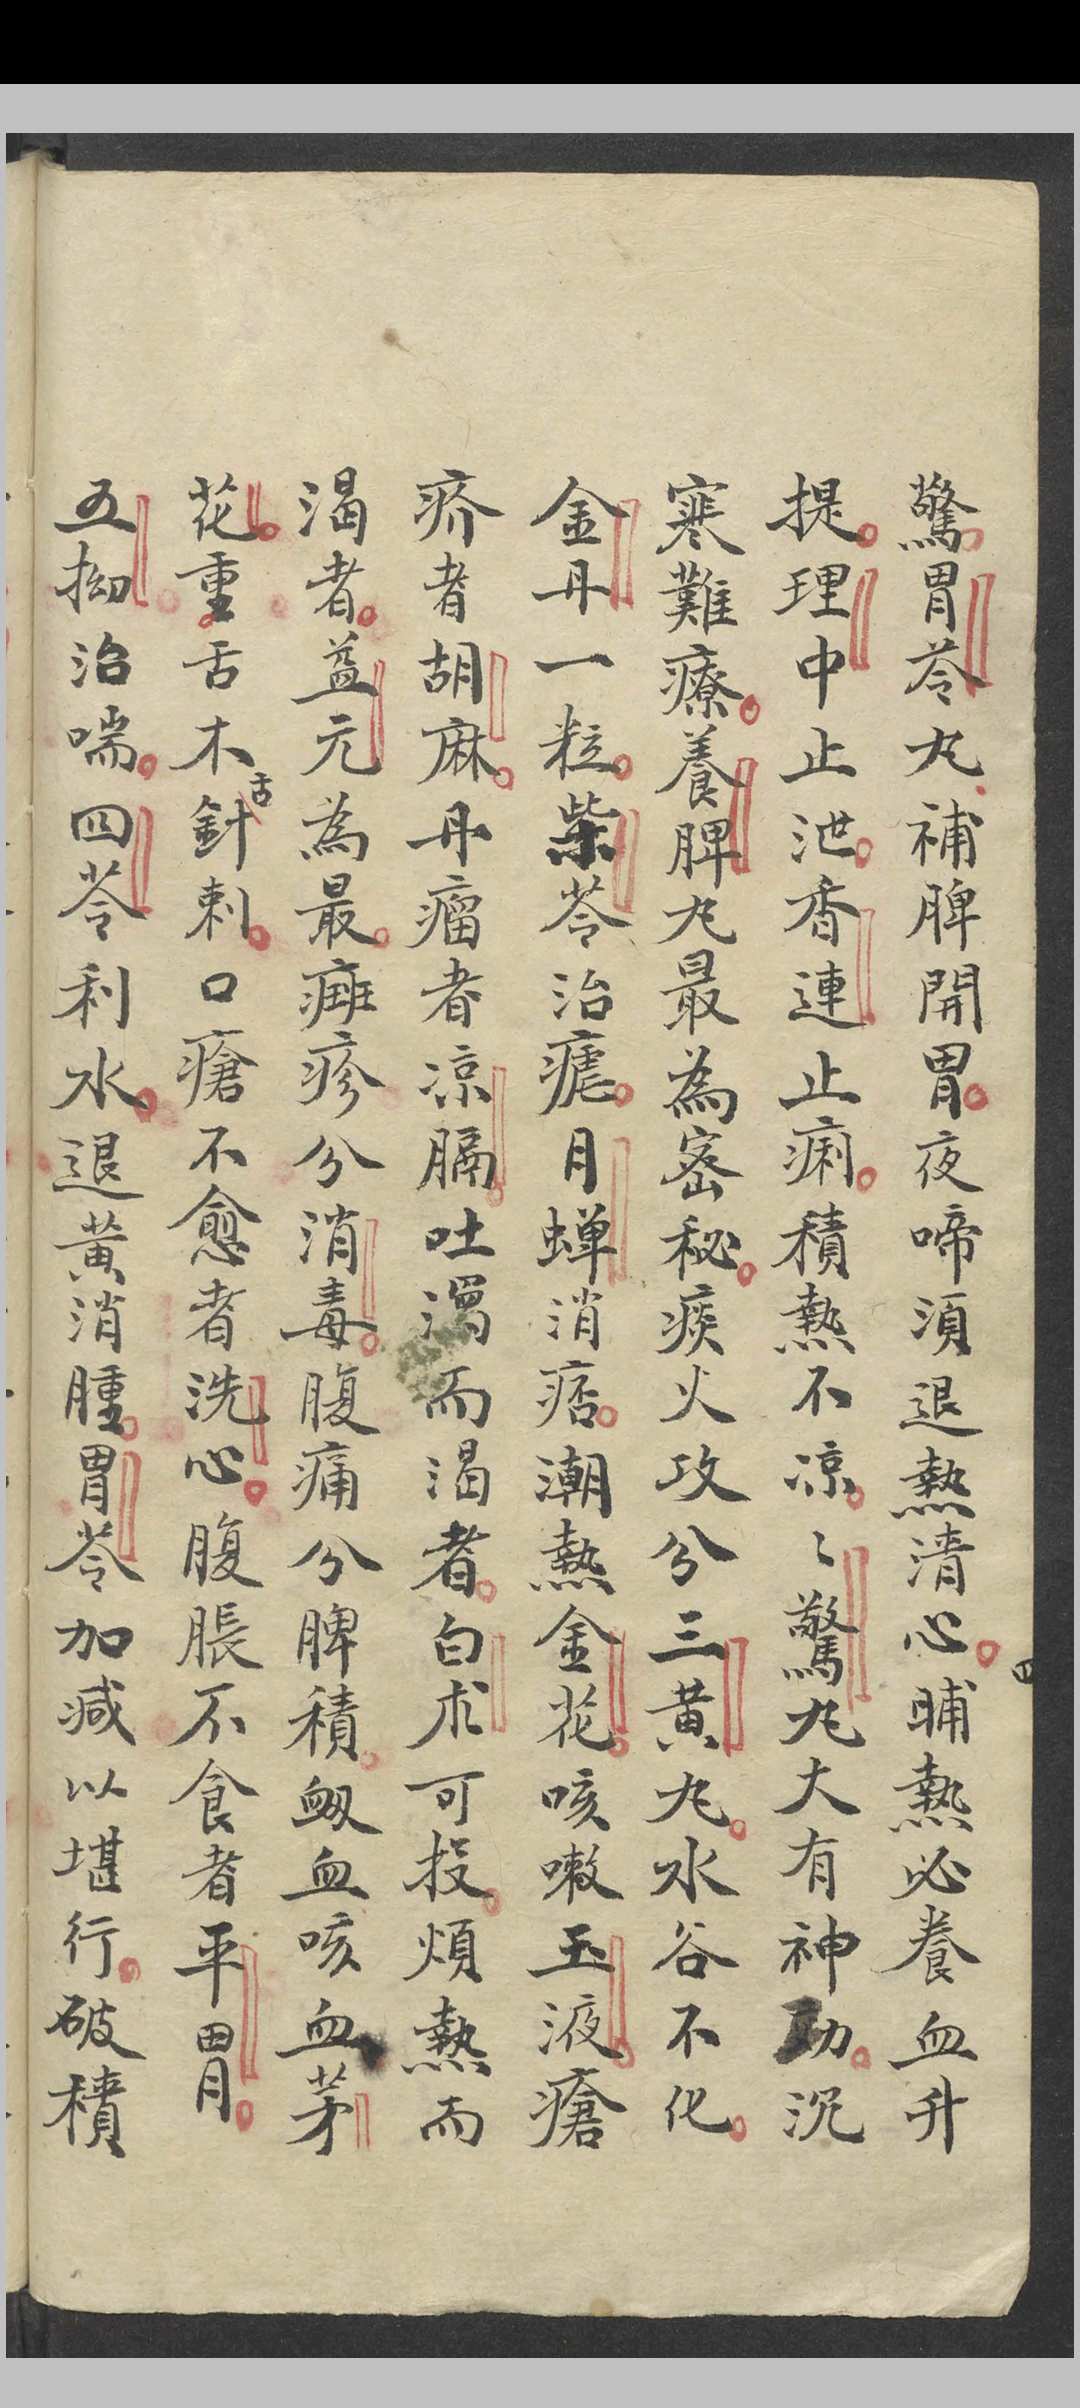 驚胃苓丸補脾開胃夜啼須退熱清心晡熱必養血升
提理中止泄香連止痢積熱不凉〻驚丸大有神功沉
寒難療養脾丸最為宻秘痰火攻兮三黄丸水谷不化
金丹一粒柴苓治瘧月蟬消痞潮熱金花咳嗽玉液瘡
疥者胡麻丹瘤者凉膈吐瀉而渴者白朮可投煩熱而
渴者益元為最癍疹兮消毒腹痛兮脾積衂血咳血茅
花重舌木舌針刺口瘡不愈者洗心腹脹不食者平胃
五拗治喘四苓利水退黄消腫胃苓加减以堪行破積
四